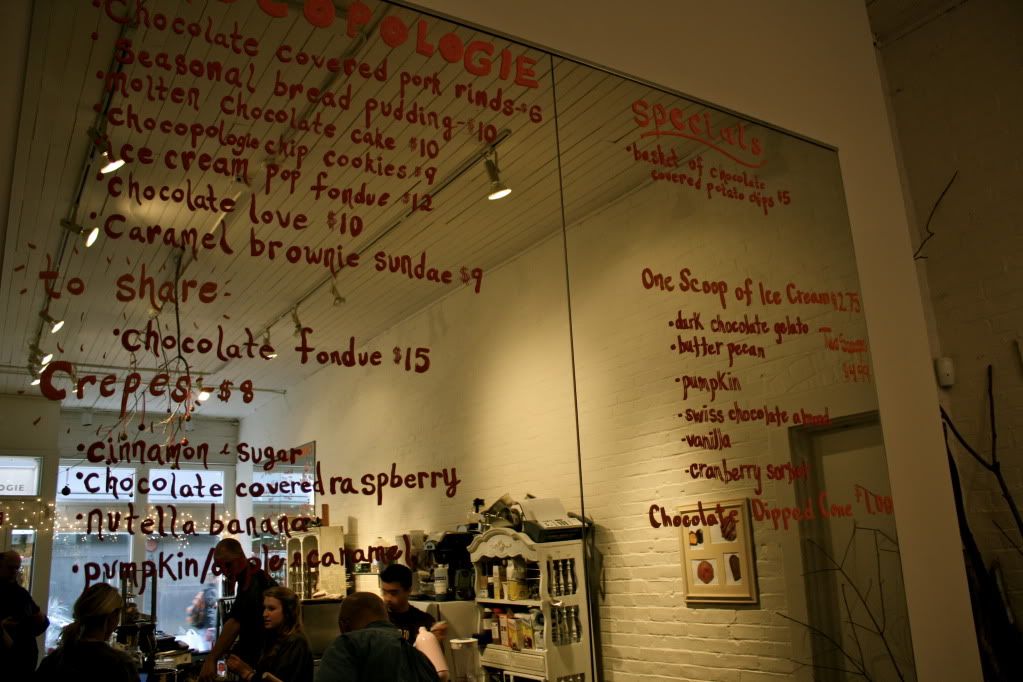 OCOPOLOGIE
• Chocolate covered pork rinds-$6
• Seasonal bread pudding-$10
• molten chocolate cake $10
• chocopologie chip cookies $9
ice cream pop fondue $12
• chocolate love $10
• Caramel brownie sundae $9
to share-
• chocolate fondue $15
Crepes-$8
• cinnamon & sugar
• chocolate covered raspberry
• nutella banana
• pumpkin/apple & caramel
specials
• basket of chocolate
covered potato chips $5
One Scoop of Ice Cream $2.75
• dark chocolate gelato
• butter pecan
Two Scoops
$4.99
• pumpkin
- swiss chocolate almond
- vanilla
- cranberry sorbet
Chocolate Dipped Cone $1.00
OGIE